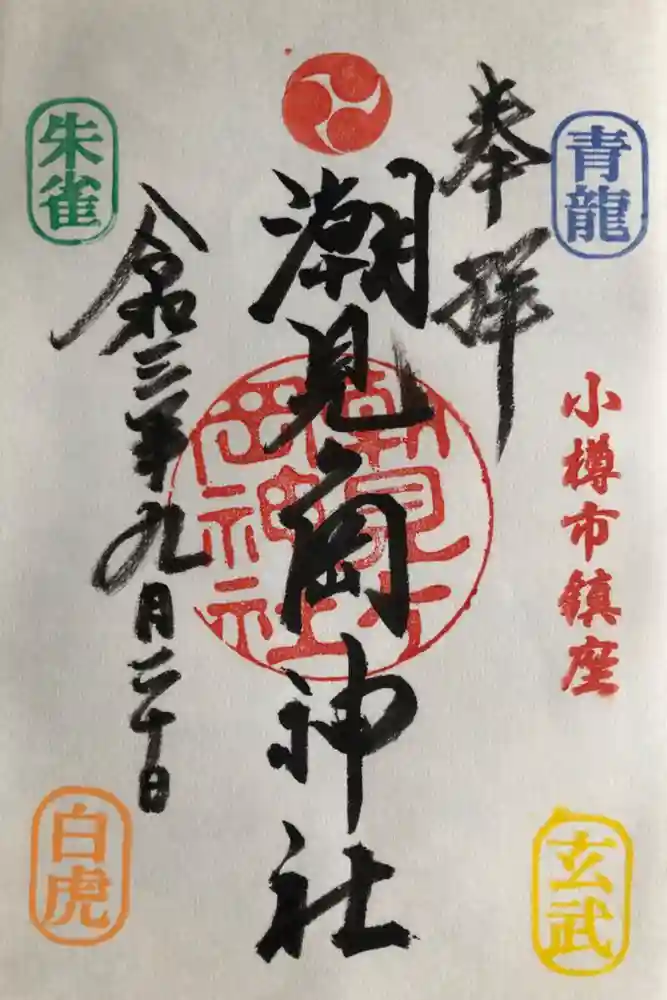 青龍
奉拝
小樽市鎮座
潮見岡神社
令和三年九月二十日
朱雀
白虎
玄武